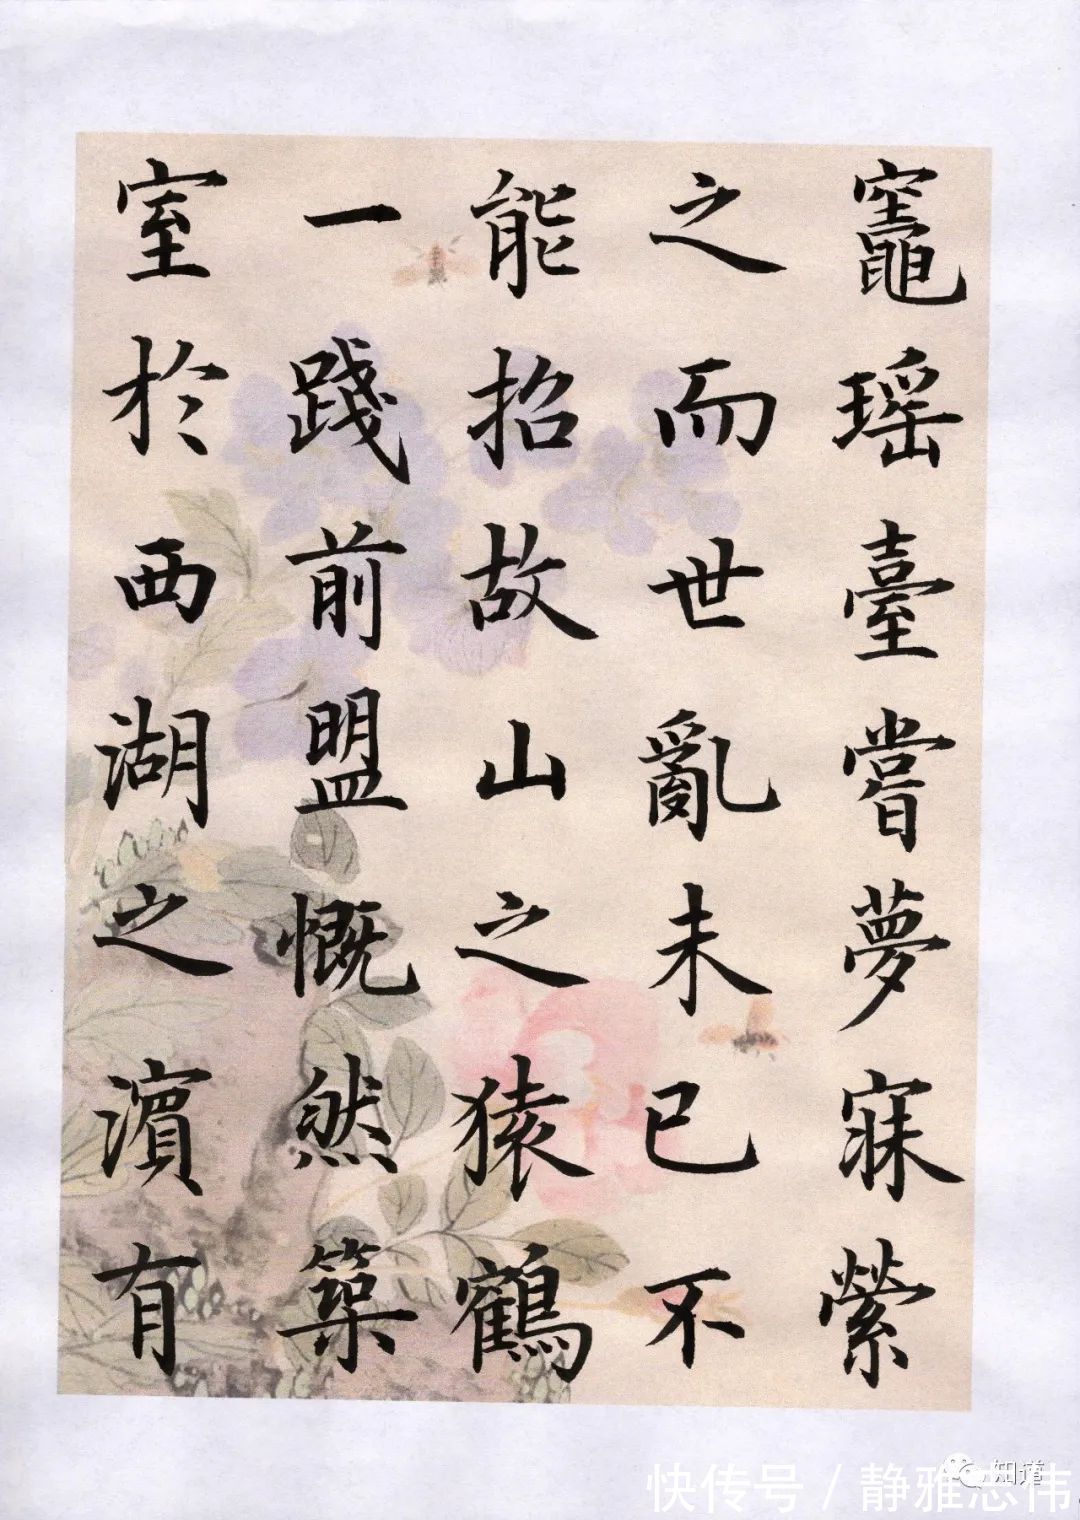 竈瑶臺嘗夢寐縈
之而世亂未已不
能招故山之猿鶴
一踐前盟慨然築
室於西湖之濵有
知道
快传号/静雅志伟